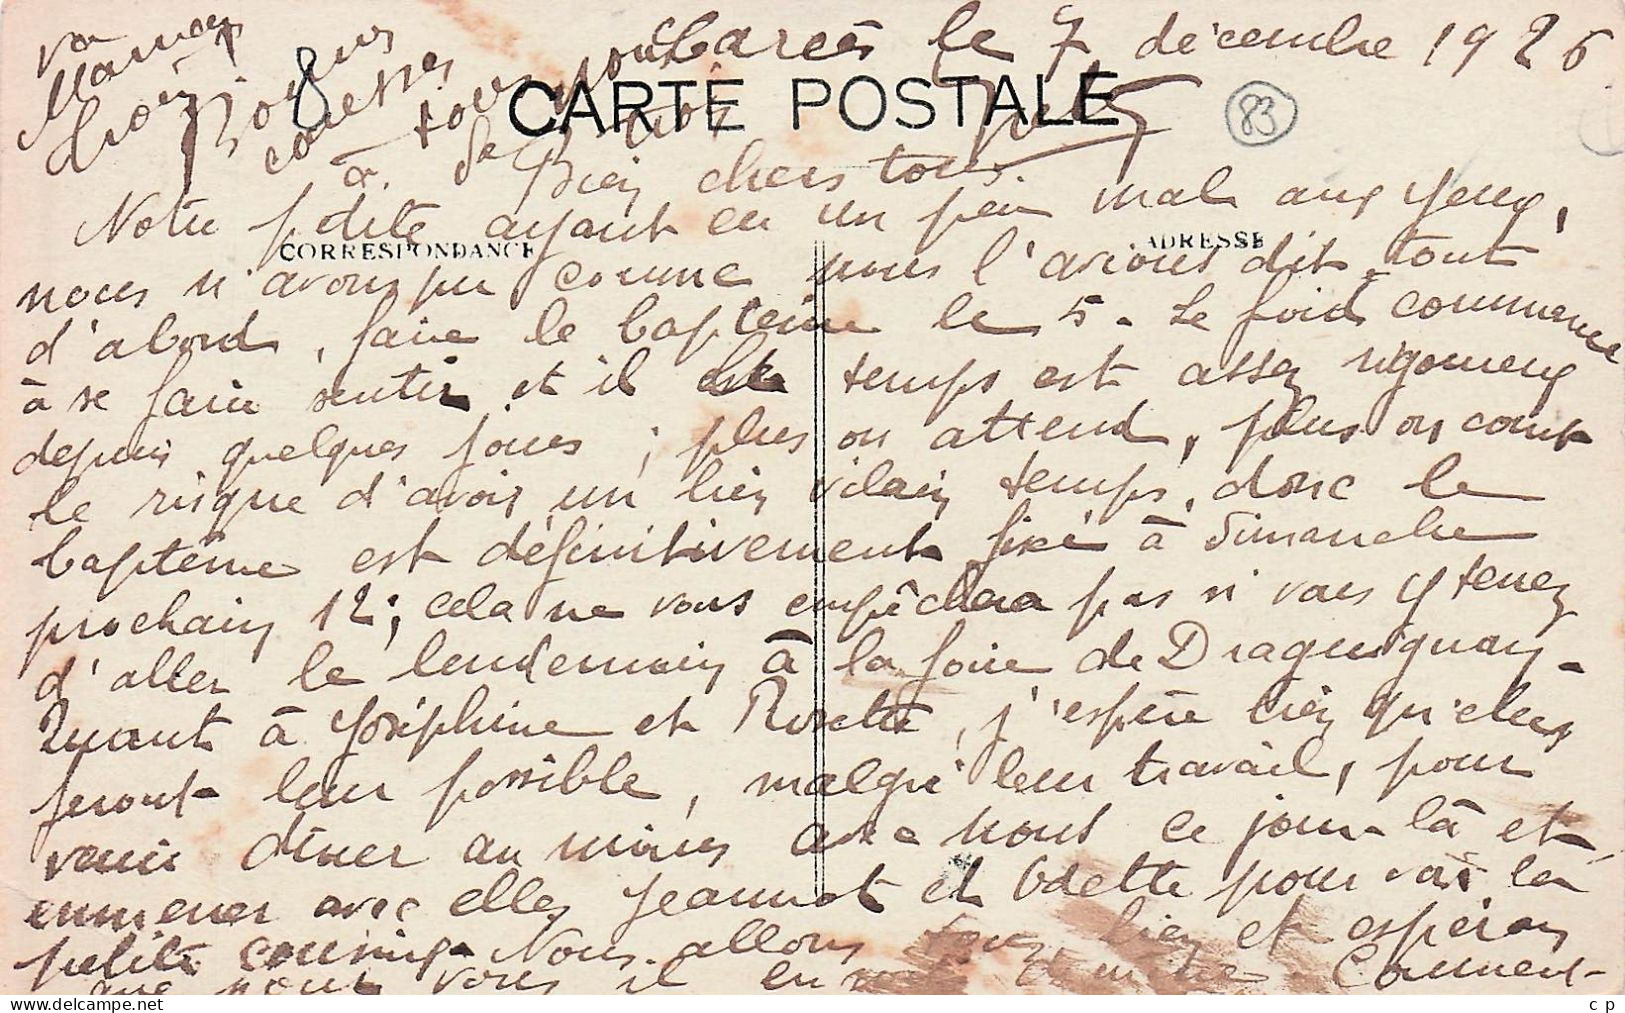 Barcès le 7 décembre 1926
CARTE POSTALE
83
8
va Maman
Bonnes
caresses
à tous
de
Bien chers tous.
CORRESPONDANCE
ADRESSE
Notre petite ayant eu un peu mal aux yeux,
nous n'avons pu comme nous l'avions dit tout
d'abord, faire le baptême le 5. Le froid commence
à se faire sentir et il temps est assez rigoureux
depuis quelques jours ; plus on attend, plus on court
le risque d'avoir un bien vilain temps, donc le
baptême est définitivement fixé à dimanche
prochain 12 ; cela ne vous empêchera pas si vous y tenez
d'aller le lendemain à la foire de Draguignan -
Quant à Joséphine et Rosette, j'espère bien qu'elles
feront leur possible, malgré leur travail, pour
venir dîner au moins avec nous ce jour-là et
emmener avec elles Jeannot et Odette pour voir la
petite cousine. Nous allons tous bien et espérons
que pour vous il en Comment-